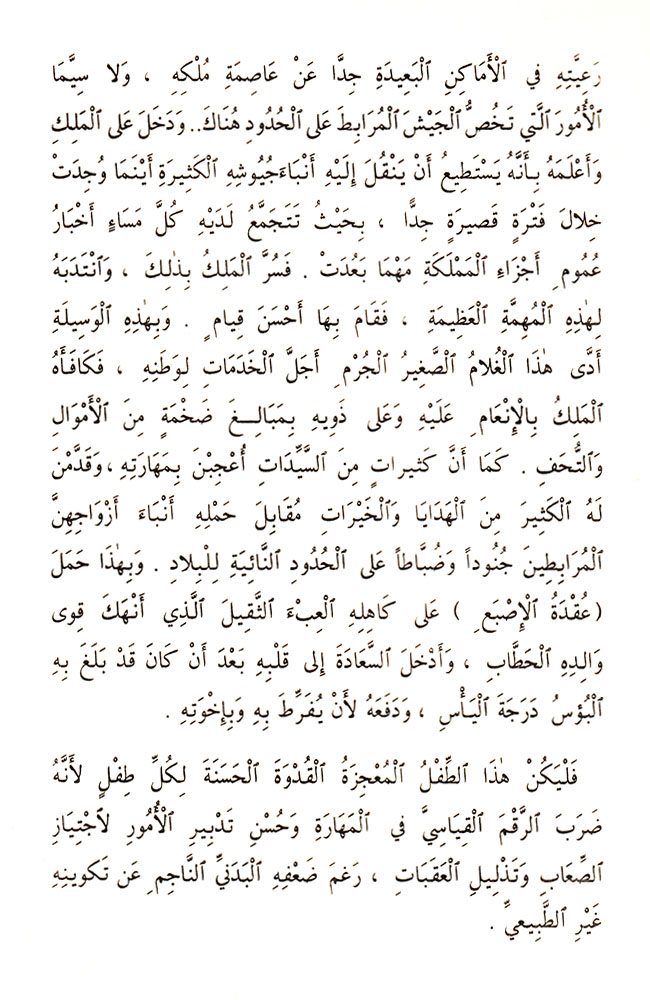 رَعِيَّتِهِ في ٱلْأَمَاكِنِ ٱلْبَعِيدَةِ جِدًّا عَنْ عَاصِمَةِ مُلْكِهِ ، وَلا سِيَّمَا
ٱلْأُمُورَ ٱلَّتي تَخُصُّ ٱلْجَيْشَ ٱلْمُرَابِطَ عَلى ٱلْحُدُودِ هُنَاكَ.. وَدَخَلَ عَلى ٱلْمَلِكِ
وَأَعْلَمَهُ بِأَنَّهُ يَسْتَطِيعُ أَنْ يَنْقُلَ إِلَيْهِ أَنْبَاءَ جُيُوشِهِ ٱلْكَثِيرَةِ أَيْنَمَا وُجِدَتْ
خِلالَ فَتْرَةٍ قَصِيرَةٍ جِدًّا ، بِحَيْثُ تَتَجَمَّعُ لَدَيْهِ كُلَّ مَسَاءٍ أَخْبَارُ
عُمُومِ أَجْزَاءِ ٱلْمَمْلَكَةِ مَهْمَا بَعُدَتْ . فَسُرَّ ٱلْمَلِكُ بِذٰلِكَ ، وَٱنْتَدَبَهُ
لِهٰذِهِ ٱلْمُهِمَّةِ ٱلْعَظِيمَةِ ، فَقَامَ بِهَا أَحْسَنَ قِيامٍ . وَبِهٰذِهِ ٱلْوَسِيلَةِ
أَدَّى هٰذَا ٱلْغُلامُ ٱلصَّغِيرُ ٱلْجُرْمِ أَجَلَّ ٱلْخَدَمَاتِ لِوَطَنِهِ ، فَكَافَأَهُ
ٱلْمَلِكُ بِالْإِنْعَامِ عَلَيْهِ وَعَلى ذَوِيهِ بِمَبَالِغَ ضَخْمَةٍ مِنَ ٱلْأَمْوَالِ
وَٱلتُّحَفِ . كَمَا أَنَّ كَثيراتٍ مِنَ ٱلسَّيِّدَاتِ أُعْجِبْنَ بِمَهَارَتِهِ ، وَقَدَّمْنَ
لَهُ ٱلْكَثِيرَ مِنَ ٱلْهَدَايَا وَٱلْخَيْرَاتِ مُقَابِلَ حَمْلِهِ أَنْبَاءَ أَزْوَاجِهِنَّ
ٱلْمُرَابِطِينَ جُنُوداً وَضُبَّاطاً عَلى ٱلْحُدُودِ ٱلنَّائِيَةِ لِلْبِلادِ . وَبِهٰذَا حَمَلَ
(عُقْدَةُ ٱلْإِصْبَعِ ) عَلى كَاهِلِهِ ٱلْعِبْءَ ٱلثَّقِيلَ ٱلَّذِي أَنْهَكَ قِوى
وَالِدِهِ ٱلْحَطَّابِ ، وَأَدْخَلَ ٱلسَّعَادَةَ إِلى قَلْبِهِ بَعْدَ أَنْ كَانَ قَدْ بَلَغَ بِهِ
ٱلْبُؤْسُ دَرَجَةَ ٱلْيَأْسِ ، وَدَفَعَهُ لأَنْ يُفَرِّطَ بِهِ وَبِإِخْوَتِهِ .
فَلْيَكُنْ هٰذَا ٱلطِّفْلُ ٱلْمُعْجِزَةُ ٱلْقُدْوَةَ ٱلْحَسَنَةَ لِكُلِّ طِفْلٍ لأَنَّهُ
ضَرَبَ ٱلرَّقْمَ ٱلْقِيَاسِيَّ في ٱلْمَهَارَةِ وَحُسْنِ تَدْبِيرِ ٱلْأُمُورِ لِٱجْتِيَازِ
ٱلصِّعَابِ وَتَذْلِيلِ ٱلْعَقَبَاتِ ، رَغمَ ضَعْفِهِ ٱلْبَدَنيِّ ٱلنَّاجِمِ عَن تَكوينِهِ
غَيْرِ ٱلطَّبِيعيِّ .